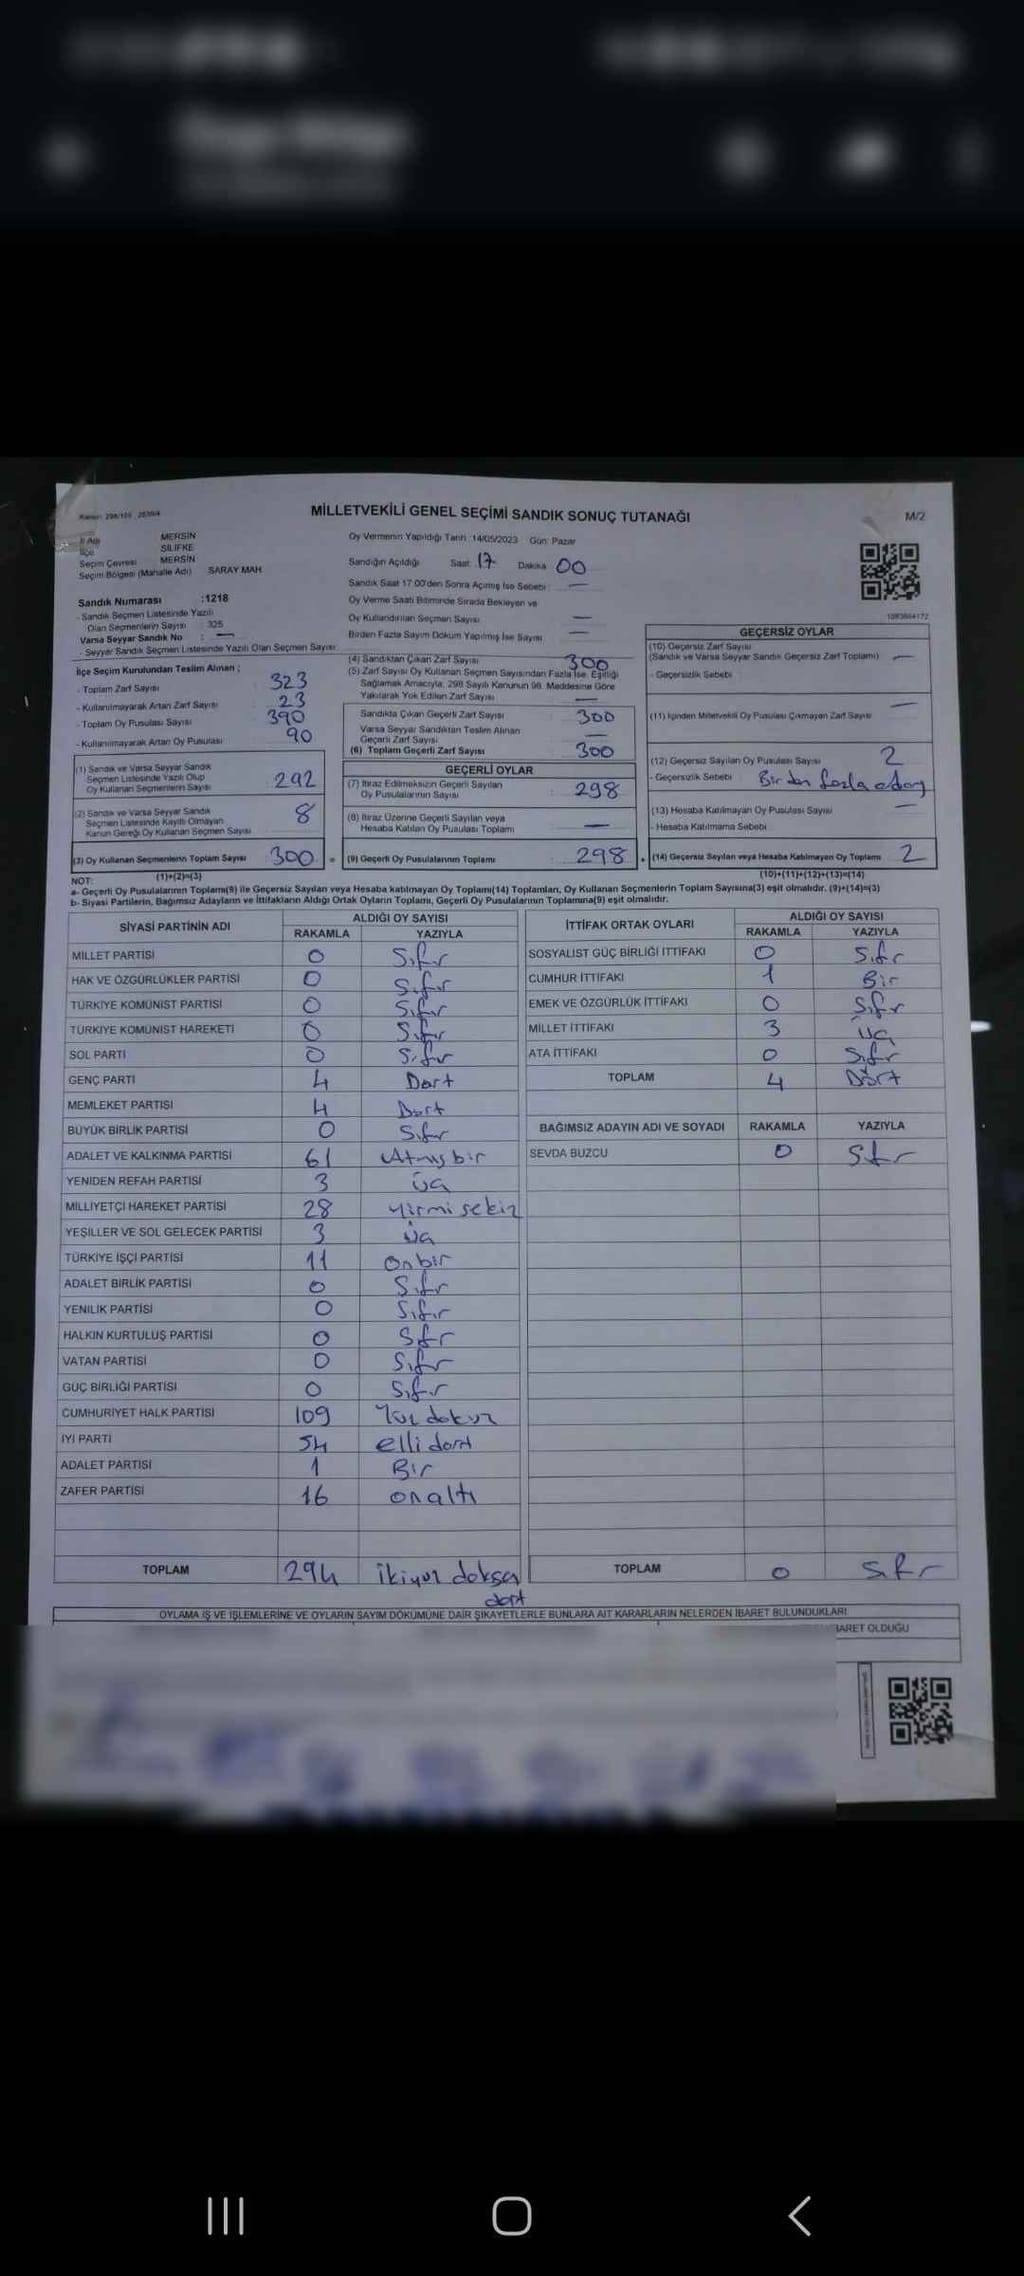 Kanun: 298/105 , 2839/4
MİLLETVEKİLİ GENEL SEÇİMİ SANDIK SONUÇ TUTANAĞI
M/2
İl Adı MERSİN
İlçe SİLİFKE
Seçim Çevresi MERSİN
Seçim Bölgesi (Mahalle Adı) SARAY MAH.
Sandık Numarası :1218
- Sandık Seçmen Listesinde Yazılı
Olan Seçmenlerin Sayısı 325
Varsa Seyyar Sandık No : —
- Seyyar Sandık Seçmen Listesinde Yazılı Olan Seçmen Sayısı
İlçe Seçim Kurulundan Teslim Alınan ;
- Toplam Zarf Sayısı 323
- Kullanılmayarak Artan Zarf Sayısı 23
- Toplam Oy Pusulası Sayısı 390
- Kullanılmayarak Artan Oy Pusulası 90
(1) Sandık ve Varsa Seyyar Sandık
Seçmen Listesinde Yazılı Olup
Oy Kullanan Seçmenlerin Sayısı 292
(2) Sandık ve Varsa Seyyar Sandık
Seçmen Listesinde Kayıtlı Olmayan
Kanun Gereği Oy Kullanan Seçmen Sayısı 8
(3) Oy Kullanan Seçmenlerin Toplam Sayısı 300
(1)+(2)=(3)
Oy Vermenin Yapıldığı Tarih :14/05/2023 Gün: Pazar
Sandığın Açıldığı Saat: 17 Dakika 00
Sandık Saat 17:00'den Sonra Açılmış İse Sebebi : —
Oy Verme Saati Bitiminde Sırada Bekleyen ve
Oy Kullandırılan Seçmen Sayısı —
Birden Fazla Sayım Döküm Yapılmış İse Sayısı —
(4) Sandıktan Çıkan Zarf Sayısı 300
(5) Zarf Sayısı Oy Kullanan Seçmen Sayısından Fazla İse, Eşitliği
Sağlamak Amacıyla, 298 Sayılı Kanunun 98. Maddesine Göre
Yakılarak Yok Edilen Zarf Sayısı —
Sandıkta Çıkan Geçerli Zarf Sayısı 300
Varsa Seyyar Sandıktan Teslim Alınan
Geçerli Zarf Sayısı —
(6) Toplam Geçerli Zarf Sayısı 300
GEÇERLİ OYLAR
(7) İtiraz Edilmeksizin Geçerli Sayılan
Oy Pusulalarının Sayısı 298
(8) İtiraz Üzerine Geçerli Sayılan veya
Hesaba Katılan Oy Pusulası Toplamı —
(9) Geçerli Oy Pusulalarının Toplamı 298
1083664172
GEÇERSİZ OYLAR
(10) Geçersiz Zarf Sayısı
(Sandık ve Varsa Seyyar Sandık Geçersiz Zarf Toplamı) —
- Geçersizlik Sebebi
(11) İçinden Milletvekili Oy Pusulası Çıkmayan Zarf Sayısı —
(12) Geçersiz Sayılan Oy Pusulası Sayısı 2
- Geçersizlik Sebebi Birden fazla aday
(13) Hesaba Katılmayan Oy Pusulası Sayısı —
- Hesaba Katılmama Sebebi
(14) Geçersiz Sayılan veya Hesaba Katılmayan Oy Toplamı 2
(10)+(11)+(12)+(13)=(14)
NOT:
a- Geçerli Oy Pusulalarının Toplamı(9) ile Geçersiz Sayılan veya Hesaba katılmayan Oy Toplamı(14) Toplamları, Oy Kullanan Seçmenlerin Toplam Sayısına(3) eşit olmalıdır. (9)+(14)=(3)
b- Siyasi Partilerin, Bağımsız Adayların ve İttifakların Aldığı Ortak Oyların Toplamı, Geçerli Oy Pusulalarının Toplamına(9) eşit olmalıdır.
SİYASİ PARTİNİN ADI ALDIĞI OY SAYISI
RAKAMLA YAZIYLA
MİLLET PARTİSİ 0 Sıfır
HAK VE ÖZGÜRLÜKLER PARTİSİ 0 Sıfır
TÜRKİYE KOMÜNİST PARTİSİ 0 Sıfır
TÜRKİYE KOMÜNİST HAREKETİ 0 Sıfır
SOL PARTİ 0 Sıfır
GENÇ PARTİ 4 Dört
MEMLEKET PARTİSİ 4 Dört
BÜYÜK BİRLİK PARTİSİ 0 Sıfır
ADALET VE KALKINMA PARTİSİ 61 Atmış bir
YENİDEN REFAH PARTİSİ 3 üç
MİLLİYETÇİ HAREKET PARTİSİ 28 yirmi sekiz
YEŞİLLER VE SOL GELECEK PARTİSİ 3 üç
TÜRKİYE İŞÇİ PARTİSİ 11 on bir
ADALET BİRLİK PARTİSİ 0 Sıfır
YENİLİK PARTİSİ 0 Sıfır
HALKIN KURTULUŞ PARTİSİ 0 Sıfır
VATAN PARTİSİ 0 Sıfır
GÜÇ BİRLİĞİ PARTİSİ 0 Sıfır
CUMHURİYET HALK PARTİSİ 109 Yüz dokuz
İYİ PARTİ 54 elli dört
ADALET PARTİSİ 1 Bir
ZAFER PARTİSİ 16 on altı
TOPLAM 294 ikiyüz doksan
dört
İTTİFAK ORTAK OYLARI ALDIĞI OY SAYISI
RAKAMLA YAZIYLA
SOSYALİST GÜÇ BİRLİĞİ İTTİFAKI 0 Sıfır
CUMHUR İTTİFAKI 1 Bir
EMEK VE ÖZGÜRLÜK İTTİFAKI 0 Sıfır
MİLLET İTTİFAKI 3 üç
ATA İTTİFAKI 0 Sıfır
TOPLAM 4 Dört
BAĞIMSIZ ADAYIN ADI VE SOYADI RAKAMLA YAZIYLA
SEVDA BUZCU 0 Sıfır
TOPLAM 0 Sıfır
OYLAMA İŞ VE İŞLEMLERİNE VE OYLARIN SAYIM DÖKÜMÜNE DAİR ŞİKAYETLERLE BUNLARA AİT KARARLARIN NELERDEN İBARET BULUNDUKLARI
BARET OLDUĞU